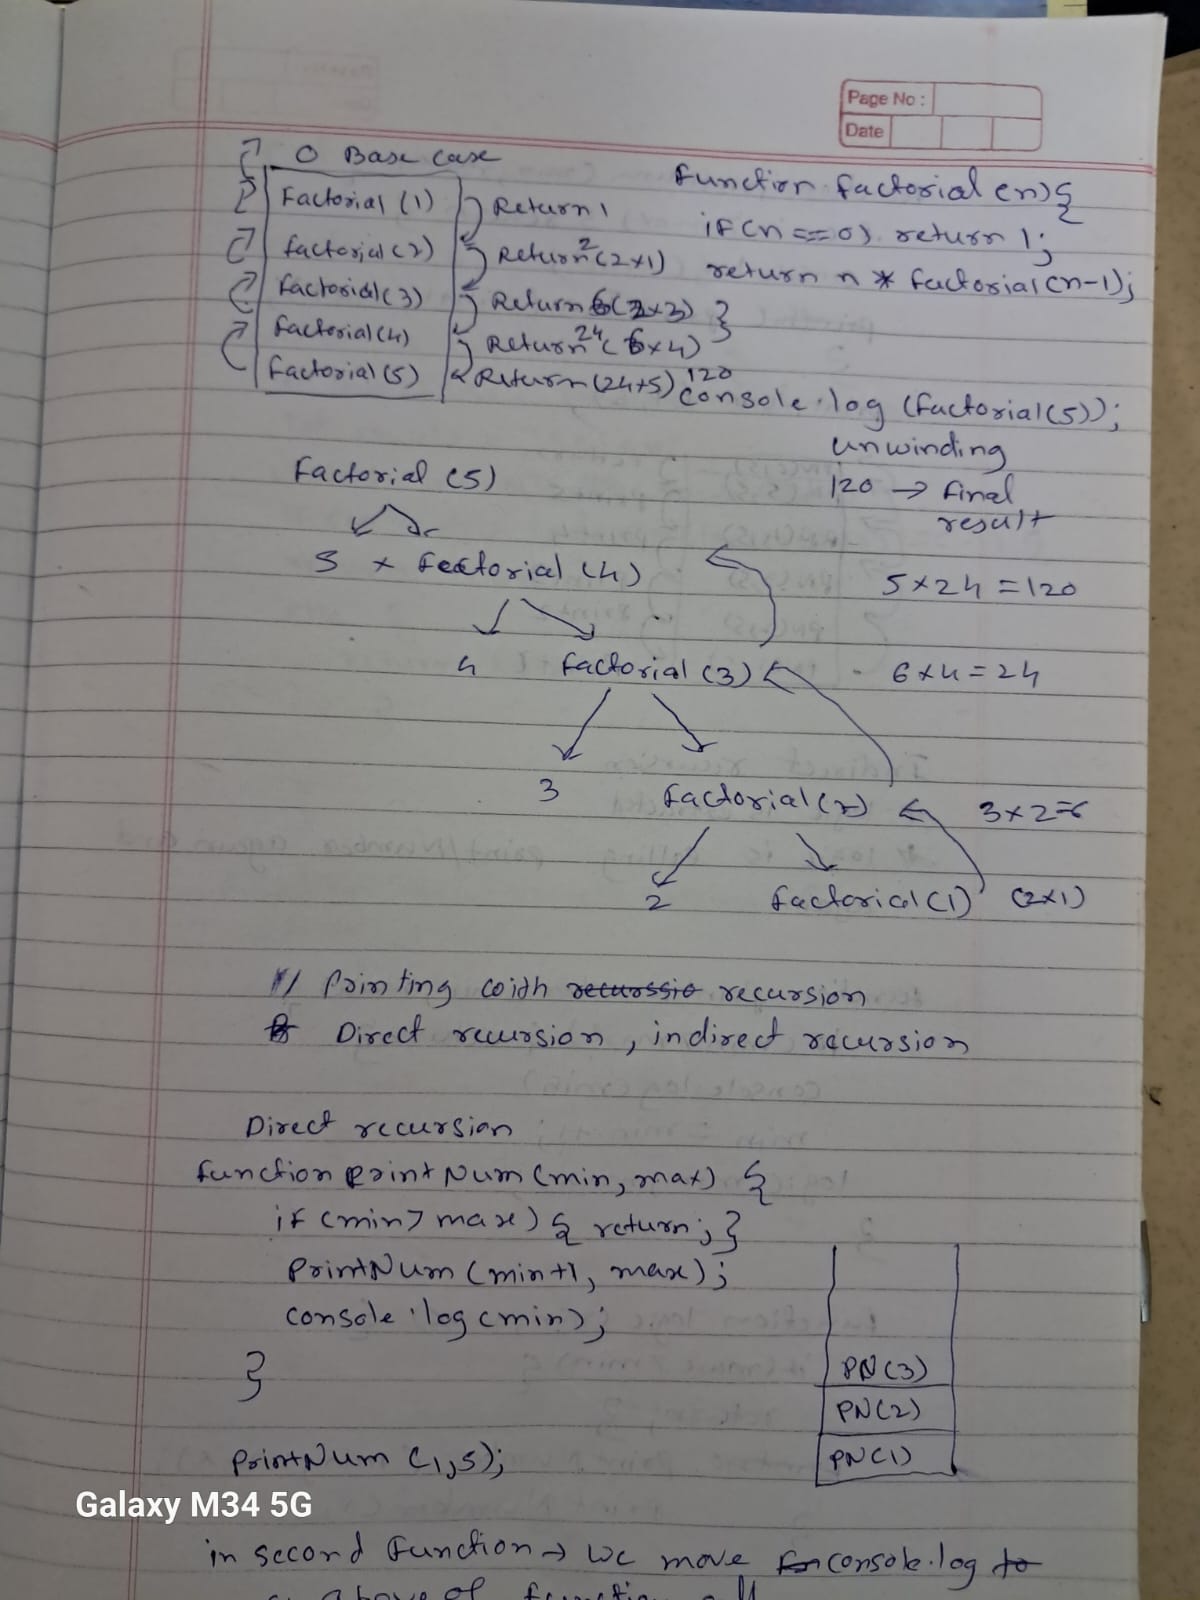 Page No :
Date
0 Base case
Factorial (1) Return 1
factorial (2) Return 2 (2x1)
factorial (3) Return 6 (2x3)
factorial (4) Return 24 (6x4)
factorial (5) Return (24+5) 120
function factorial (n) {
if (n == 0) return 1;
return n * factorial (n-1);
}
console.log (factorial (5));
unwinding
120 → final
result
Factorial (5)
5 x factorial (4)
5x24 = 120
4 factorial (3)
6x4 = 24
3 factorial (2)
3x2=6
2 factorial (1) (2x1)
// Printing with recurssio recursion
Direct recursion, indirect recursion
Direct recursion
function printNum (min, max) {
if (min > max) { return; }
PrintNum (min+1, max);
console.log (min);
}
PN(3)
PN(2)
PN(1)
PrintNum (1,5);
Galaxy M34 5G
in second function → we move console.log to
above of function